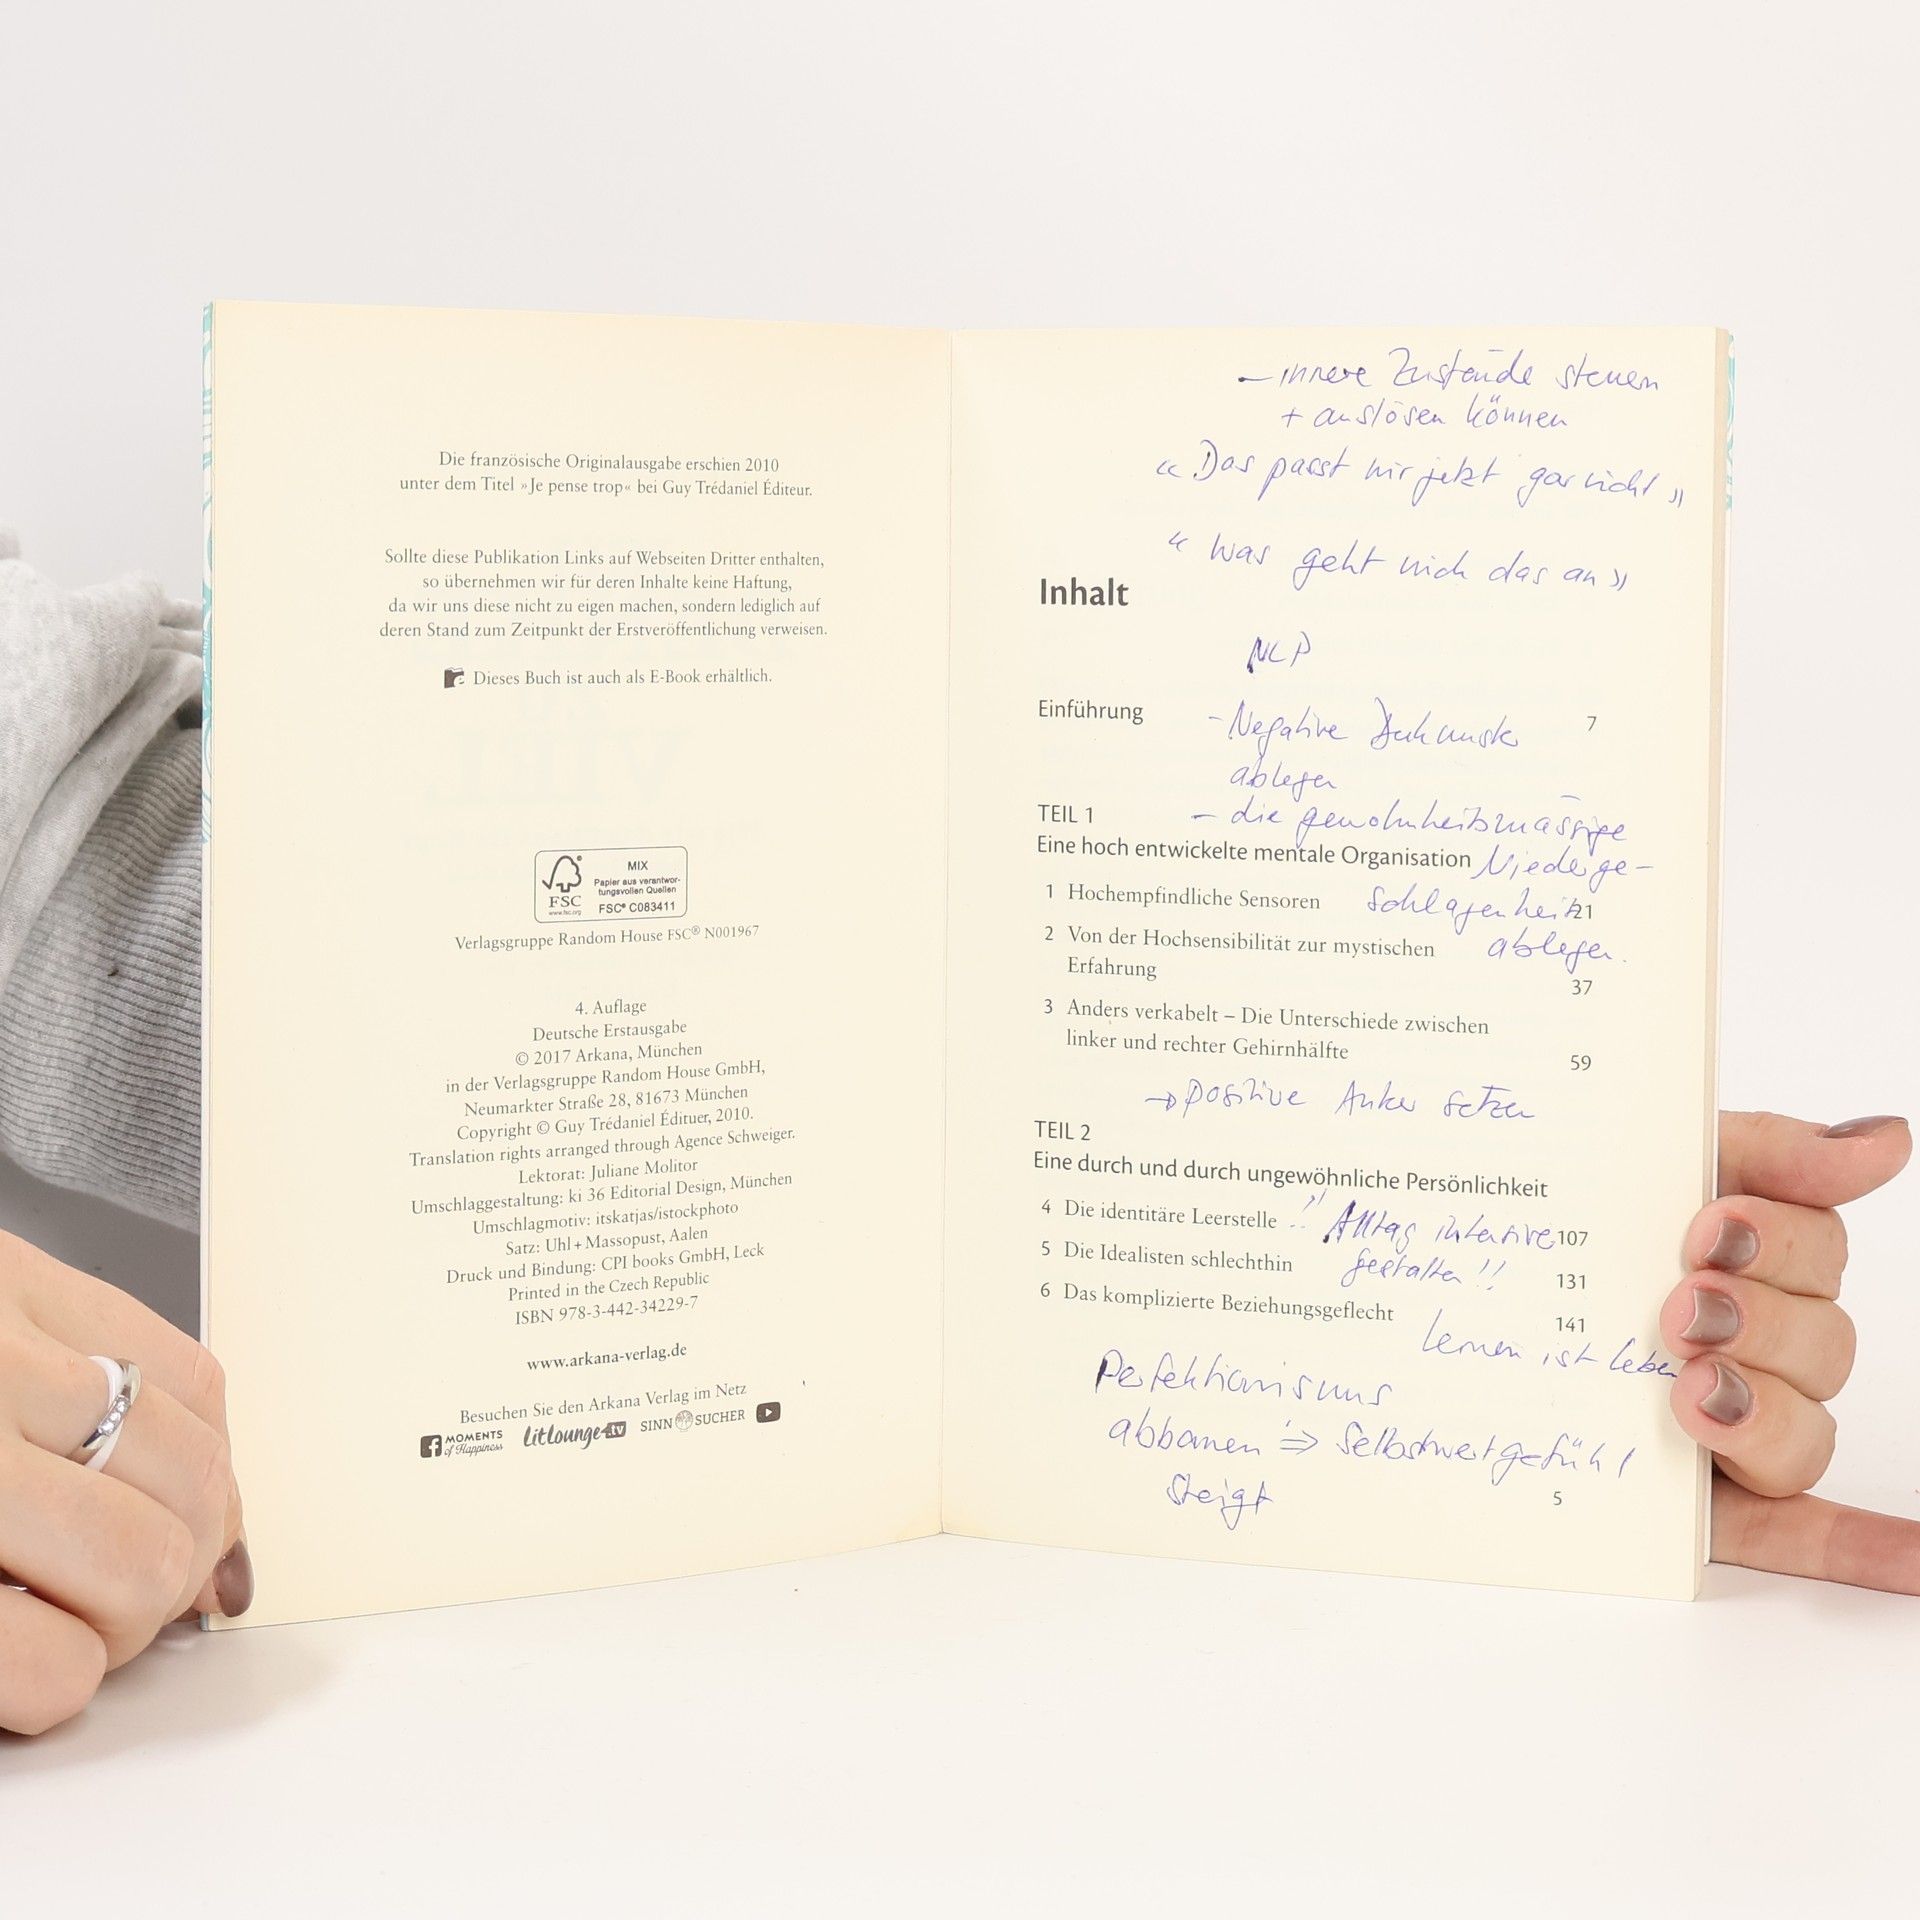 Die französische Originalausgabe erschien 2010
unter dem Titel »Je pense trop« bei Guy Trédaniel Éditeur.
Sollte diese Publikation Links auf Webseiten Dritter enthalten,
so übernehmen wir für deren Inhalte keine Haftung,
da wir uns diese nicht zu eigen machen, sondern lediglich auf
deren Stand zum Zeitpunkt der Erstveröffentlichung verweisen.
Dieses Buch ist auch als E-Book erhältlich.
MIX
Papier aus verantwor-
tungsvollen Quellen
FSC
www.fsc.org
FSC® C083411
Verlagsgruppe Random House FSC® N001967
4. Auflage
Deutsche Erstausgabe
© 2017 Arkana, München
in der Verlagsgruppe Random House GmbH,
Neumarkter Straße 28, 81673 München
Copyright © Guy Trédaniel Édituer, 2010.
Translation rights arranged through Agence Schweiger.
Lektorat: Juliane Molitor
Umschlaggestaltung: ki 36 Editorial Design, München
Umschlagmotiv: itskatjas/istockphoto
Satz: Uhl + Massopust, Aalen
Druck und Bindung: CPI books GmbH, Leck
Printed in the Czech Republic
ISBN 978-3-442-34229-7
www.arkana-verlag.de
Besuchen Sie den Arkana Verlag im Netz
MOMENTS
of Happiness
LitLounge.tv
SINNSUCHER
– innere Zustände steuern
+ auslösen können
“ Das passt mir jetzt gar nicht ”
“ was geht mich das an ”
Inhalt
NLP
Einführung 7
- Negative Denkmuster
ablegen
TEIL 1
– die gewohnheitsmässige
Eine hoch entwickelte mentale Organisation
Niederge-
1 Hochempfindliche Sensoren 21
schlagenheit
2 Von der Hochsensibilität zur mystischen
ablegen.
Erfahrung 37
3 Anders verkabelt – Die Unterschiede zwischen
linker und rechter Gehirnhälfte 59
→ positive Anker setzen
TEIL 2
Eine durch und durch ungewöhnliche Persönlichkeit
4 Die identitäre Leerstelle 107
!! Alltag intensive
5 Die Idealisten schlechthin 131
gestalten !!
6 Das komplizierte Beziehungsgeflecht 141
lernen ist leben
Perfektionismus
abbauen ⇒ Selbstwertgefühl
steigt
5